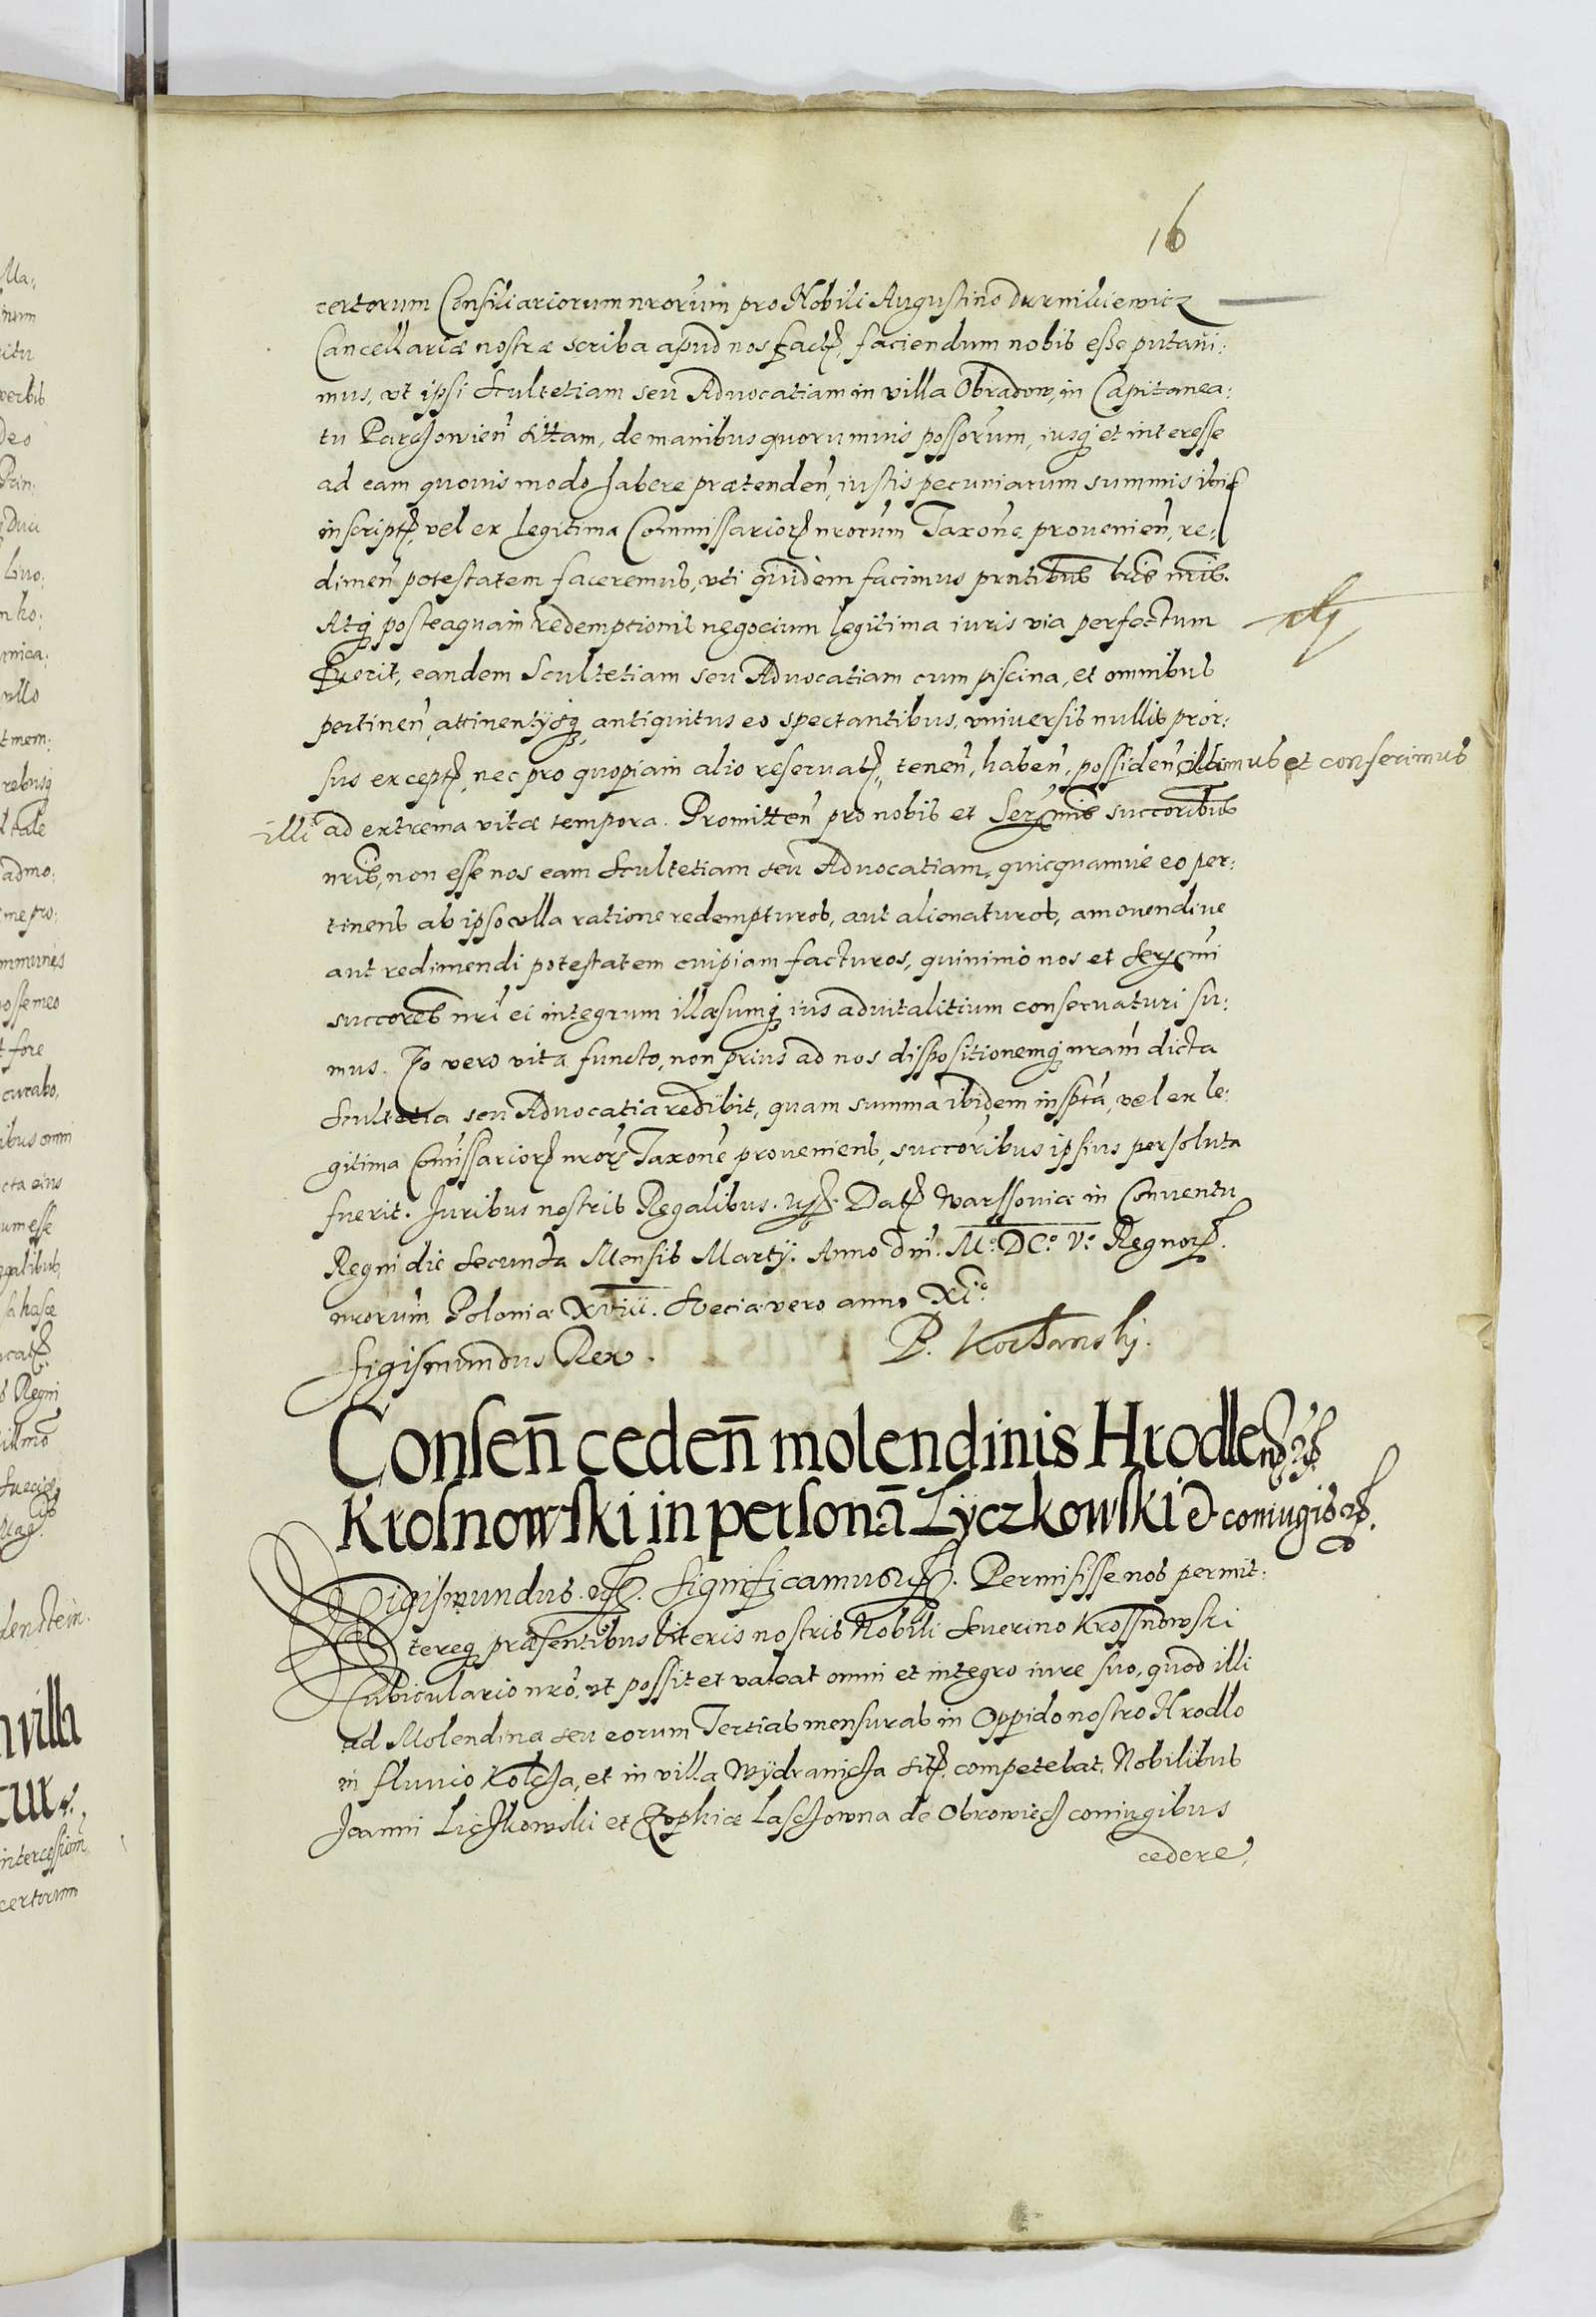 16
certorum Consiliariorum nrorum pro Nobili Augustino Durnikiewicz
Cancellariæ nostræ scriba apud nos fact, faciendum nobis esse putaui:
mus, vt ipsi Scultetiam seu Aduocatiam in villa Obradow, in Capitanea:
tu Parchowień sittam, de manibus quorumuis possorum, iusq et interesse
ad eam quouis modo habere prætendeń, iustis pecuniarum summis ibid
inscript, vel ex legitima Commissarior nrorum Taxone prouenień, re:
dimeń potestatem faceremus, vti quidem facimus prntibus lris nris.
Atq posteaquam redemptionis negocium legitima iuris via perfectum
fuerit, eandem Scultetiam seu Aduocatiam cum piscina, et omnibus
pertineń, attinentijsq, antiquitus eo spectantibus, vniuersis nullis pror:
sus except, nec pro quopiam alio reseruat, teneń, habeń, possideń damus et conferimus
illi ad extrema vitæ tempora. Promitteń pro nobis et Sermis succoribus
nris, non esse nos eam Scultetiam seu Aduocatiam, quicquamue eo per:
tinens ab ipso vlla ratione redempturos, aut alienaturos, amouendiue
aut redimendi potestatem cuipiam facturos, quinimo nos et Sermi
succores nri ei integrum illæsumq ius aduitalitium conseruaturi su:
mus. Io vero vita functo, non prius ad nos dispositionemq nram dicta
Scultetia seu Aduocatia redibit, quam summa ibidem inspta, vel ex le:
gitima Comissarior nror Taxone proueniens, succoribus ipsius persoluta
fuerit. Juribus nostris Regalibus. Dat Warssouiæ in Conuentu
Regni die Secunda Mensis Martij. Anno Dni. M.º DC.º V.º Regnor
nrorum Poloniæ XVIII. Sueciæ vero anno XIº
Sigismundus Rex. P. Kochanskj.
Conseń cedeń molendinis Hrodleń
Krosnowski in personā Lyczkowski et coniugis
Sigismundus. Significamus. Permisisse nos permit:
tereq præsentibus literis nostris Nobili Seuerino Krossnowski
Cubiculario nro, vt possit et valeat omni et integro iure suo, quod illi
ad Molendina seu eorum Tertias mensuras in Oppido nostro Hrodlo
in fluuio Kolcha, et in villa Wydranicha sit competebat, Nobilibus
Joanni Lichkowski et Zophiæ Laschowna de Obrowiech coniugibus
cedere,